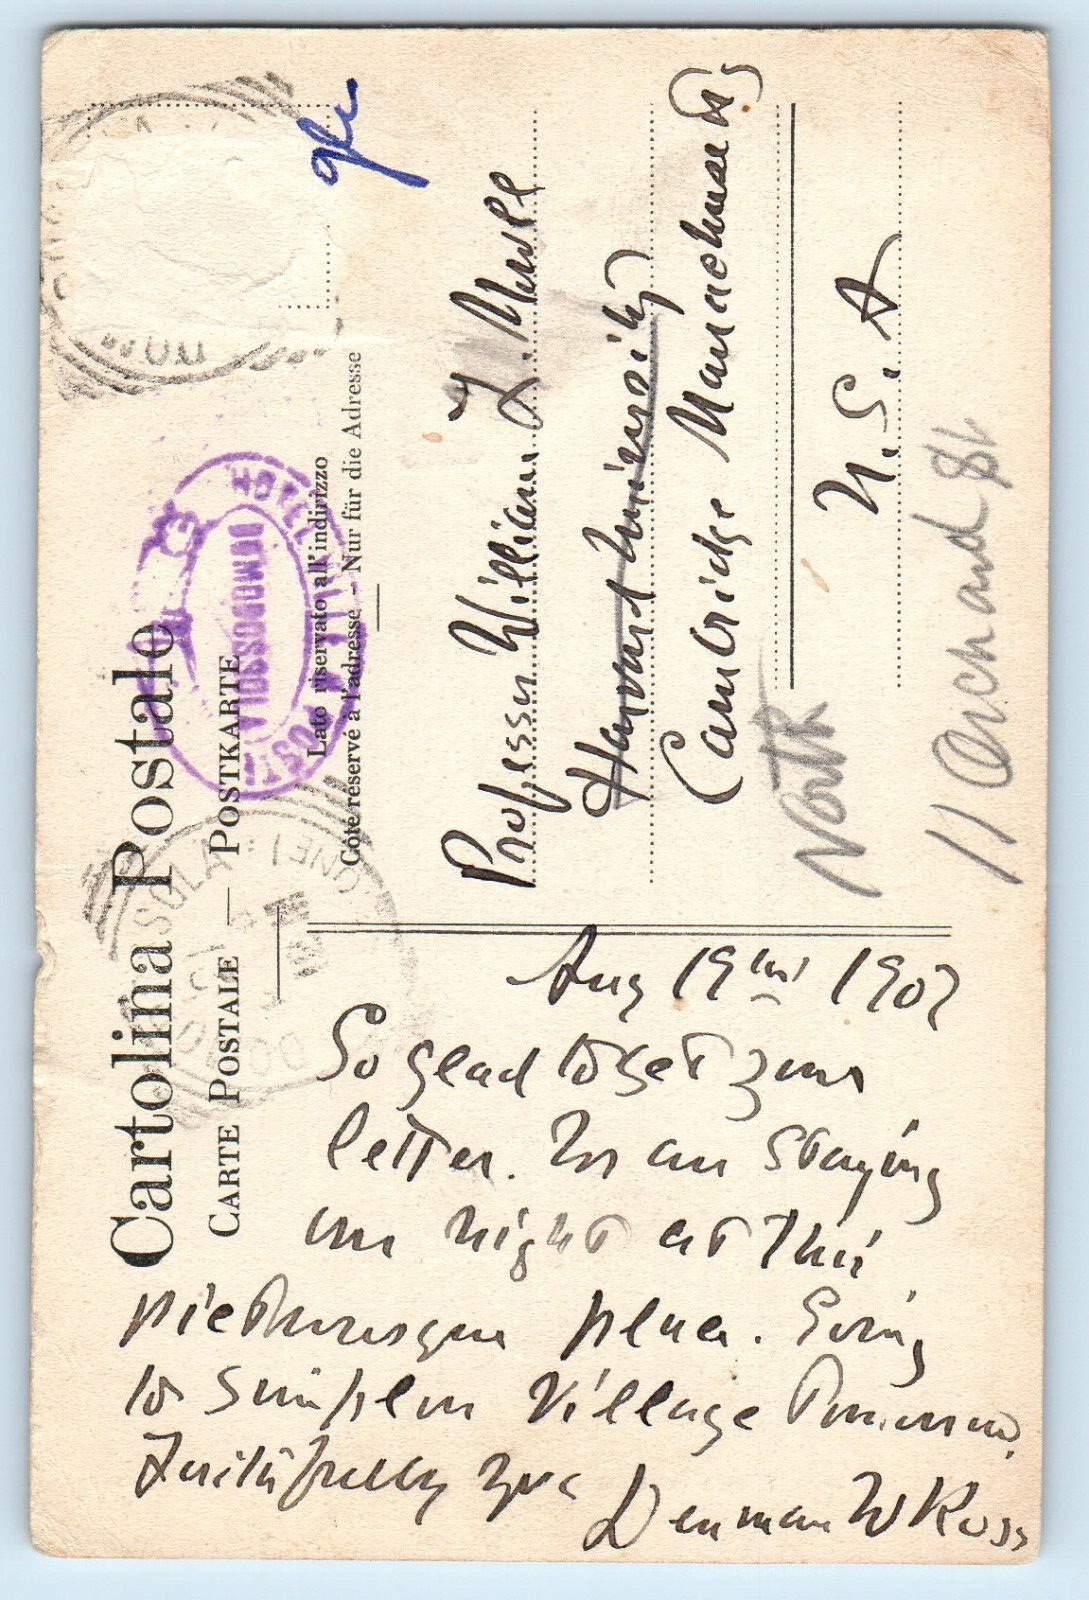 Cartolina Postale
CARTE POSTALE — POSTKARTE
Lato riservato all'indirizzo
Côté réservé à l'adresse - Nur für die Adresse
HOTEL
POSTA
DOMODOSSOLA
Professor William L. Mowll
Harvard University
Cambridge Massachusetts
U.S.A
North
11 Orchard St.
Aug 19th 1907
So glad to get your
letter. We are staying
one night at this
picturesque place. Going
to Simplon Village Tomorrow.
Faithfully yrs
Denman W Ross